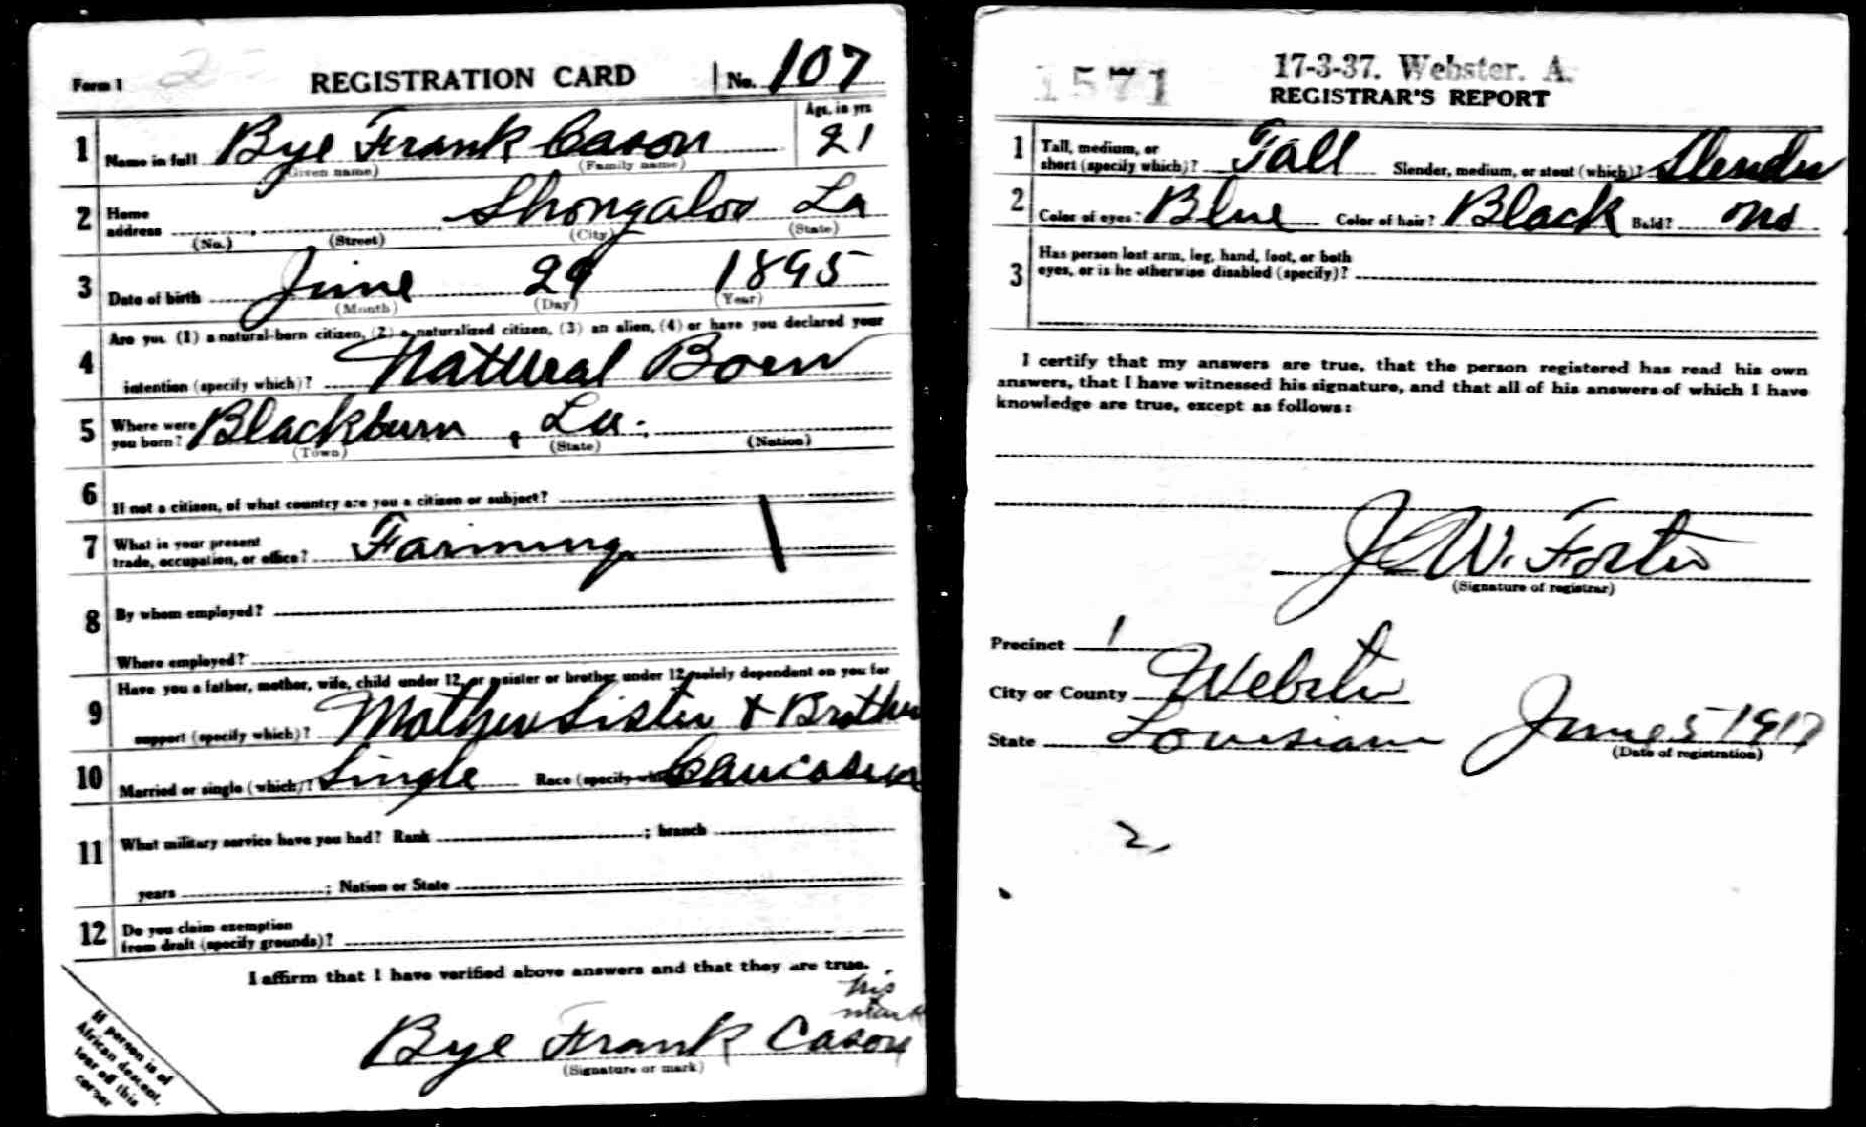 Form 1 REGISTRATION CARD No. 107
1 Name in full Bye Frank Cason Age, in yrs 21
(Given name) (Family name)
2 Home address Shongaloo La
(No.) (Street) (City) (State)
3 Date of birth June 29 1895
(Month) (Day) (Year)
4 Are you (1) a natural-born citizen, (2) a naturalized citizen, (3) an alien, (4) or have you declared your
intention (specify which)? Natural Born
5 Where were you born? Blackburn, La.
(Town) (State) (Nation)
6 If not a citizen, of what country are you a citizen or subject?
7 What is your present
trade, occupation, or office? Farming
8 By whom employed?
Where employed?
9 Have you a father, mother, wife, child under 12, or a sister or brother under 12, solely dependent on you for
support (specify which)? Mother Sister & Brother
10 Married or single (which)? Single Race (specify which)? Caucasian
11 What military service have you had? Rank ; branch
years ; Nation or State
12 Do you claim exemption
from draft (specify grounds)?
I affirm that I have verified above answers and that they are true.
his
mark
Bye Frank Cason
(Signature or mark)
If person is of
African descent,
tear off this
corner
1571 17-3-37. Webster. A.
REGISTRAR'S REPORT
1 Tall, medium, or
short (specify which)? Tall Slender, medium, or stout (which)? Slender
2 Color of eyes? Blue Color of hair? Black Bald? no
3 Has person lost arm, leg, hand, foot, or both
eyes, or is he otherwise disabled (specify)?
I certify that my answers are true, that the person registered has read his own
answers, that I have witnessed his signature, and that all of his answers of which I have
knowledge are true, except as follows:
J W. Foster
(Signature of registrar)
Precinct 1
City or County Webster
State Louisiana June 5 1917
(Date of registration)
2,